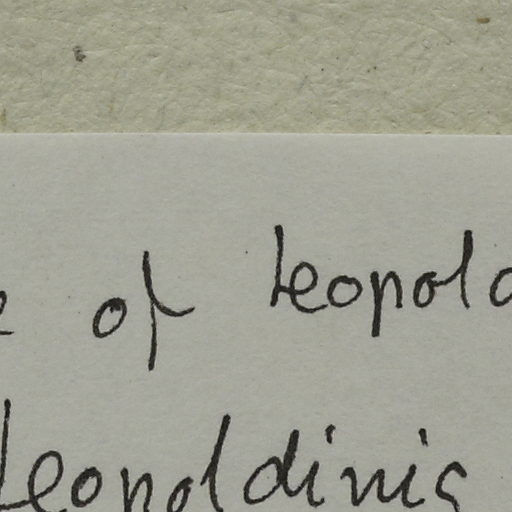 of Leopold
Leopoldinia